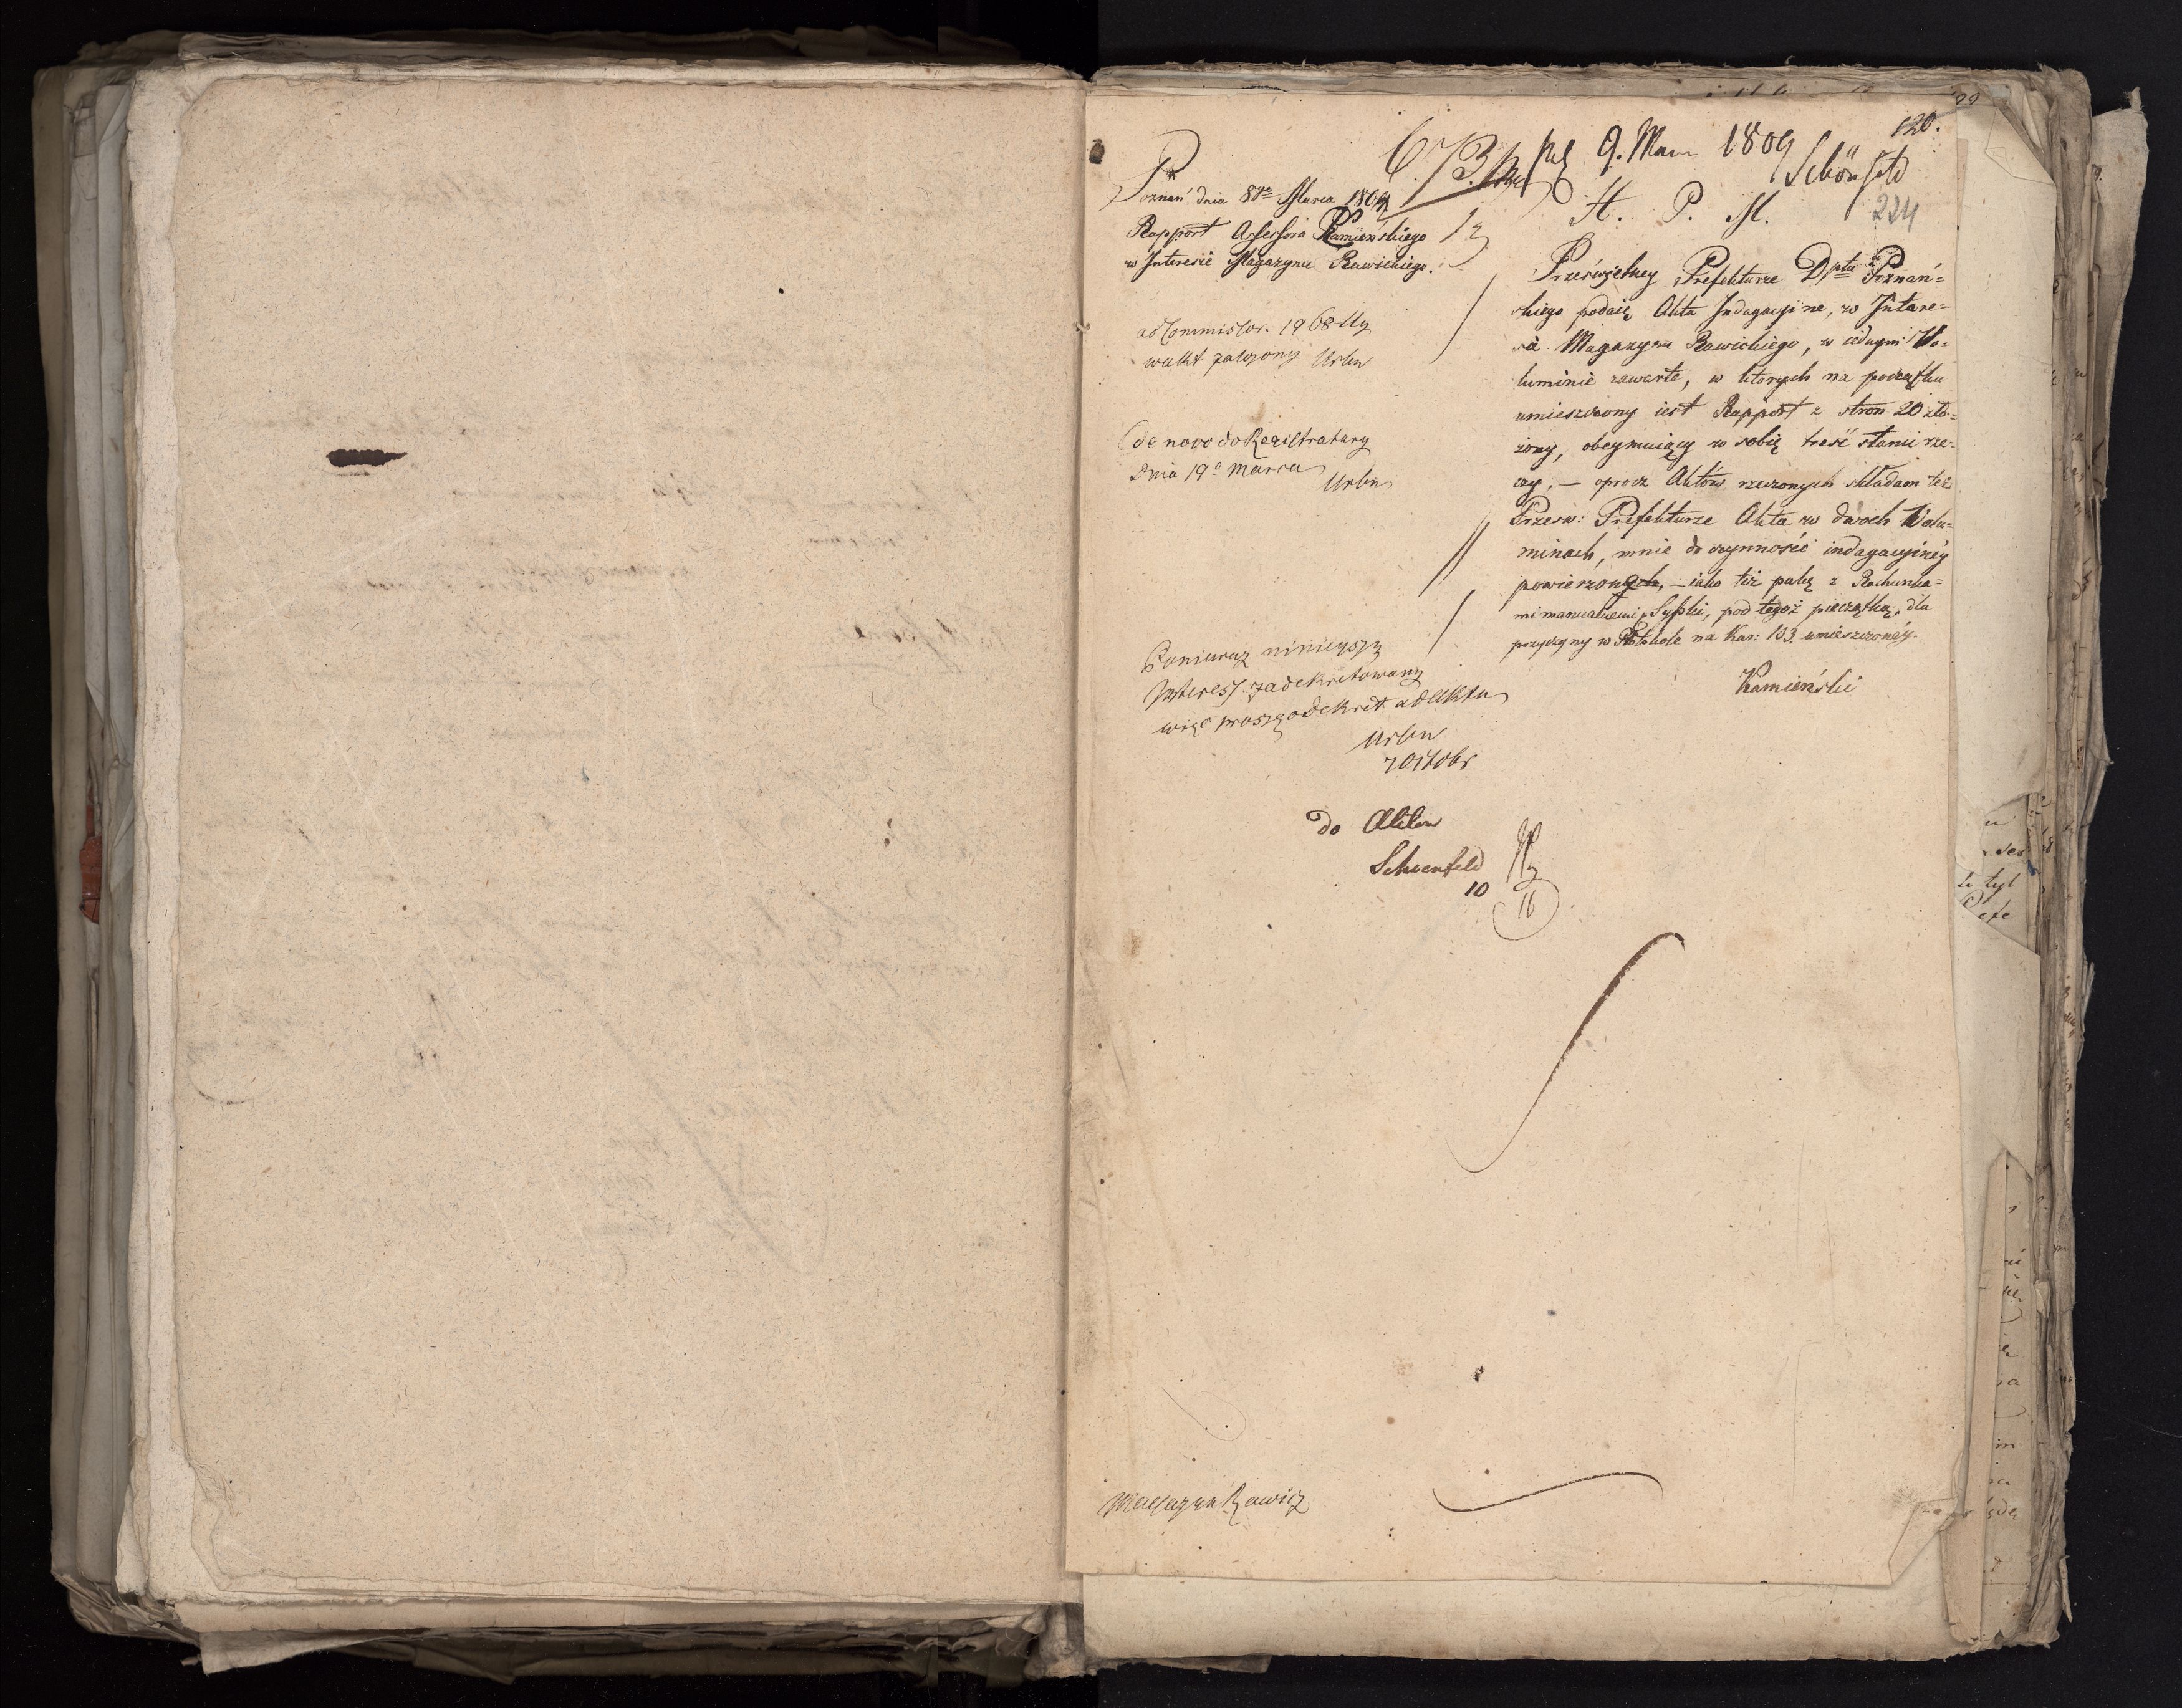 120.
9. Mar 1809
Schönfeld
224
Poznań dnia 8go Marca 1809.
Rapport Assessora Kamieńskiego
w Interesie Magazynu Rawickiego.
H. P. M.
Prześwietney Prefekturze Dptu Poznań=
skiego podaię Akta Indagacyine, w Intere=
sie Magazynu Rawickiego, w iednym Vo=
luminie zawarte, w ktorych na początku
umieszczony iest Rapport z stron 20 zło=
żony, obeymuiący w sobie treść stanu rze=
czy, — oprocz Aktów rzeczonych składam też
Przesw: Prefekturze Akta w dwoch Volu=
minach, mnie do czynności indagacyiney
powierzonych, — iako też pakę z Rachunka=
mi manualnemi Sypki, pod tegoż pieczątką, dla
przyczyny w Protokole na Kar: 103. umieszczoney.
Kamieński
ad Commissor. 1968
wakt założony Urbn
de novo do Registratury
Dnia 19 Marca
Urbn
Poniewaz ninieyszy
Interess zadekretowany
więc proszę o dekret ad akta
Urbn
7 Octobr
do Aktow
Schoenfeld
10
Magazyn Rawicz